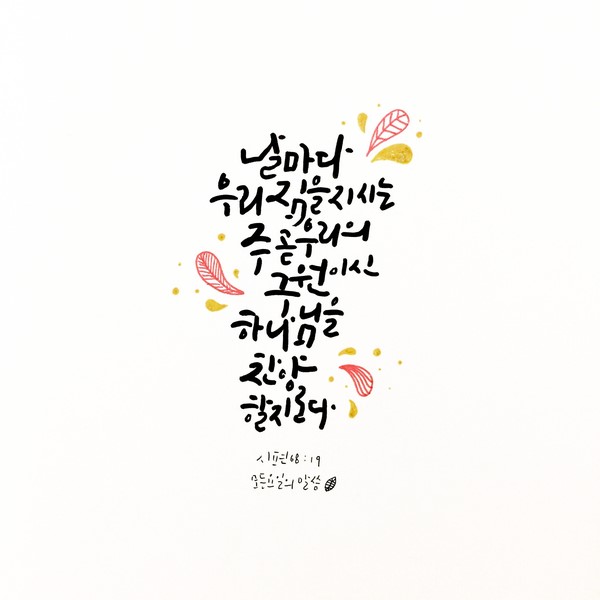 날마다
우리 짐을 지시는
주 곧 우리의
구원이신
하나님을
찬양
할지로다.
시편 68:19
모든요일의 말씀